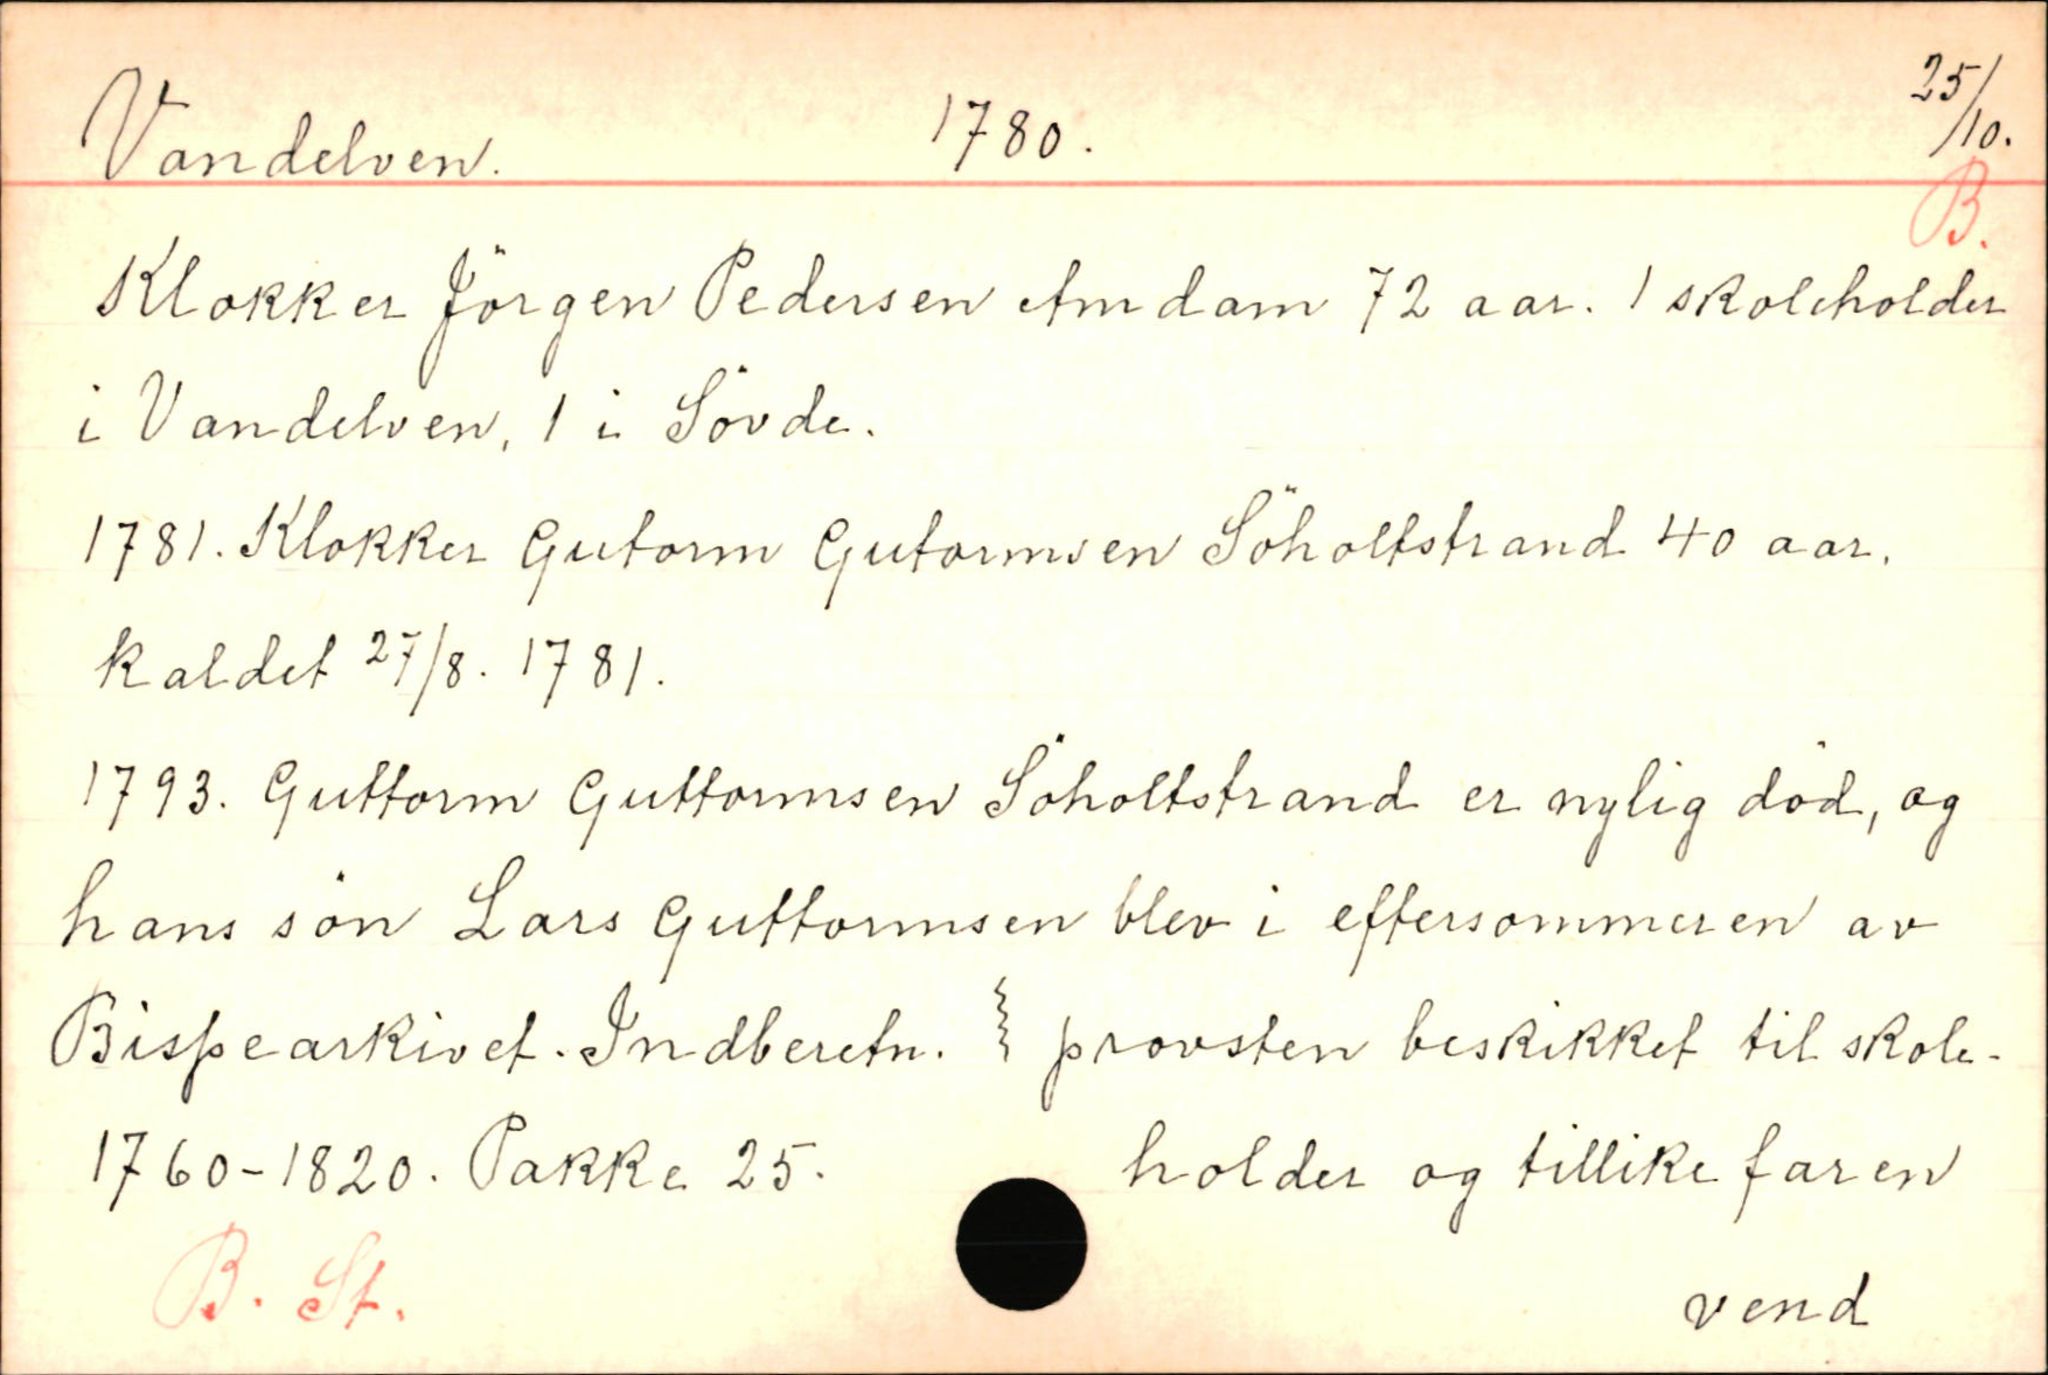 Vandelven. 1780. 25/10.
B.
Klokker Jörgen Pedersen Amdam 72 aar. 1 skoleholder
i Vandelven, 1 i Sövde.
1781. Klokker Gutorm Gutormsen Söholtstrand 40 aar.
kaldet 27/8. 1781.
1793. Guttorm Guttormsen Söholtstrand er nylig död, og
hans sön Lars Guttormsen blev i eftersommeren av
Bispearkivet. Indberetn. provsten beskikket til skole-
1760-1820. Pakke 25. holder og tillike faren
B. St. vend